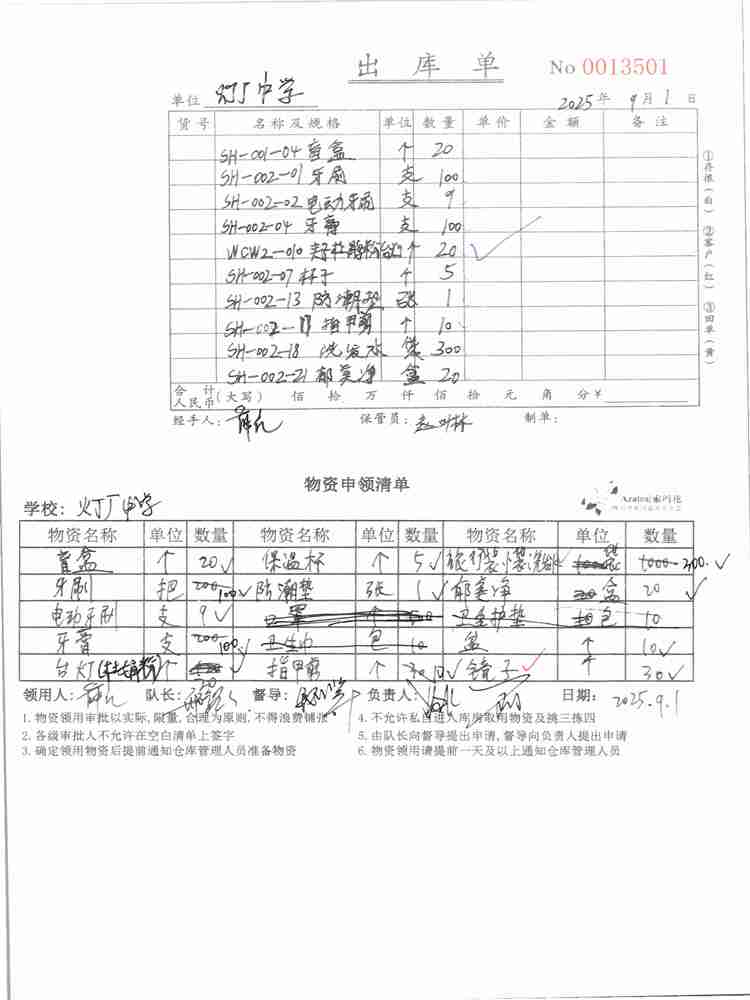 出库单
No 0013501
单位 灯厂中学
2025年 9月 1日
货号 名称及规格 单位 数量 单价 金额 备注
SH-001-04 盲盒 个 20
SH-002-01 牙刷 支 100
SH-002-02 电动牙刷 支 9
SH-002-04 牙膏 支 100
WCW2-010 台灯 个 20
SH-002-07 杯子 个 5
SH-002-13 防潮垫 张 1
SH-002-17 指甲剪 个 10
SH-002-18 洗发水 袋 300
SH-002-21 郁美净 盒 20
合计人民币(大写) 佰 拾 万 仟 佰 拾 元 角 分¥
经手人: 保管员: 制单:
①存根(白) ②客户(红) ③回单(黄)
物资申领清单
学校: 灯厂中学
物资名称 单位 数量 物资名称 单位 数量 物资名称 单位 数量
盲盒 个 20✓ 保温杯 个 5✓ 旅行装 袋 1000 300✓
牙刷 把 200 100✓ 防潮垫 张 1✓ 郁美净 盒 20✓
电动牙刷 支 9✓ 口罩 个 卫生护垫 包 10
牙膏 支 200 100✓ 卫生巾 包 10 盆 个 10✓
台灯 个 20 指甲剪 个 10✓ 镜子✓ 个 30✓
领用人: 队长: 督导: 负责人: 日期: 2025.9.1
1.物资领用审批以实际,限量,合理为原则,不得浪费铺张
4.不允许私自进入库房取用物资及挑三拣四
2.各级审批人不允许在空白清单上签字
5.由队长向督导提出申请,督导向负责人提出申请
3.确定领用物资后提前通知仓库管理人员准备物资
6.物资领用请提前一天及以上通知仓库管理人员